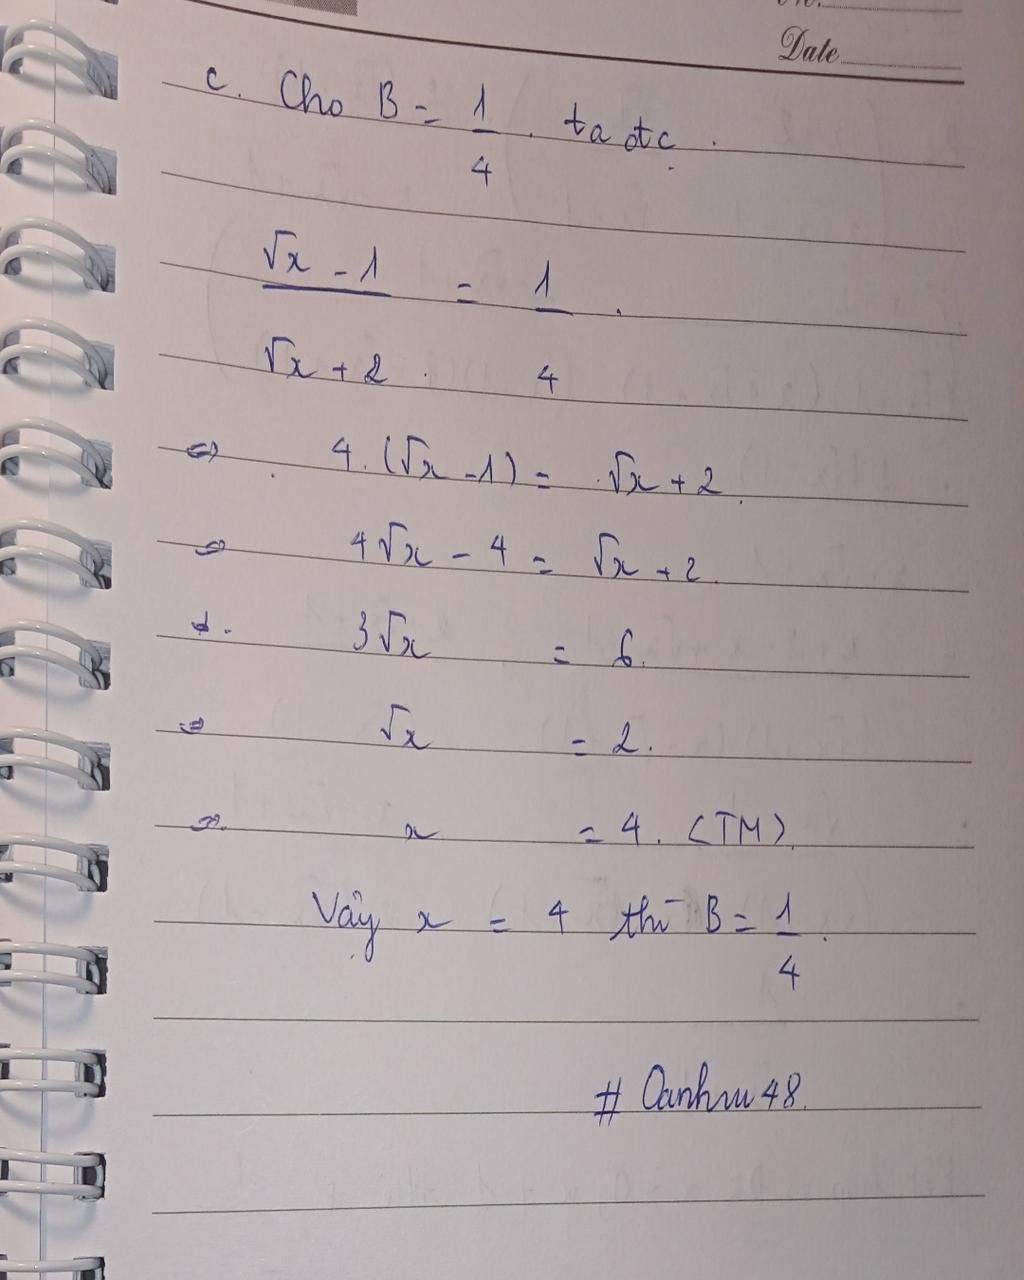 Date
c. Cho B = 1/4. ta đc.
√x - 1 / √x + 2 = 1/4.
⇔ 4.(√x - 1) = √x + 2.
⇔ 4√x - 4 = √x + 2.
⇔ 3√x = 6.
⇔ √x = 2.
⇔ x = 4. (TM).
Vậy x = 4 thì B = 1/4.